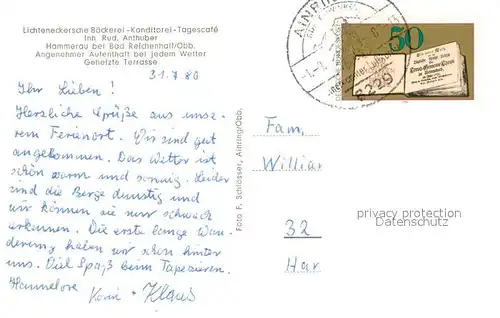 Lichteneckersche Bäckerei-Konditorei-Tagescafé
Inh. Rud. Anthuber
Hammerau bei Bad Reichenhall/Obb.
Angenehmer Aufenthalt bei jedem Wetter
Geheizte Terrasse
31.7.80
Ihr Lieben!
Herzliche Grüße aus unse-
rem Ferienort. Wir sind gut
angekommen. Das Wetter ist
schön warm und sonnig. Leider
sind die Berge dunstig und
wir können sie nur schwach
erkennen. Die erste lange Wan-
derung haben wir schon hinter
uns. Viel Spaß beim Tapezieren.
Hannelore
Klaus
Foto F. Schlosser, Ainring/Obb.
AINRING
8229
50
Fam.
Willia
32
Har
privacy protection
Datenschutz